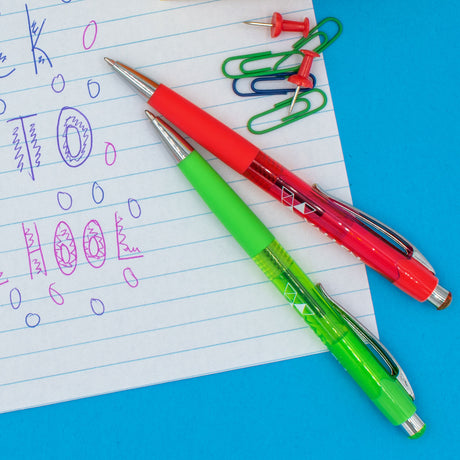 CK
TO
HOOL